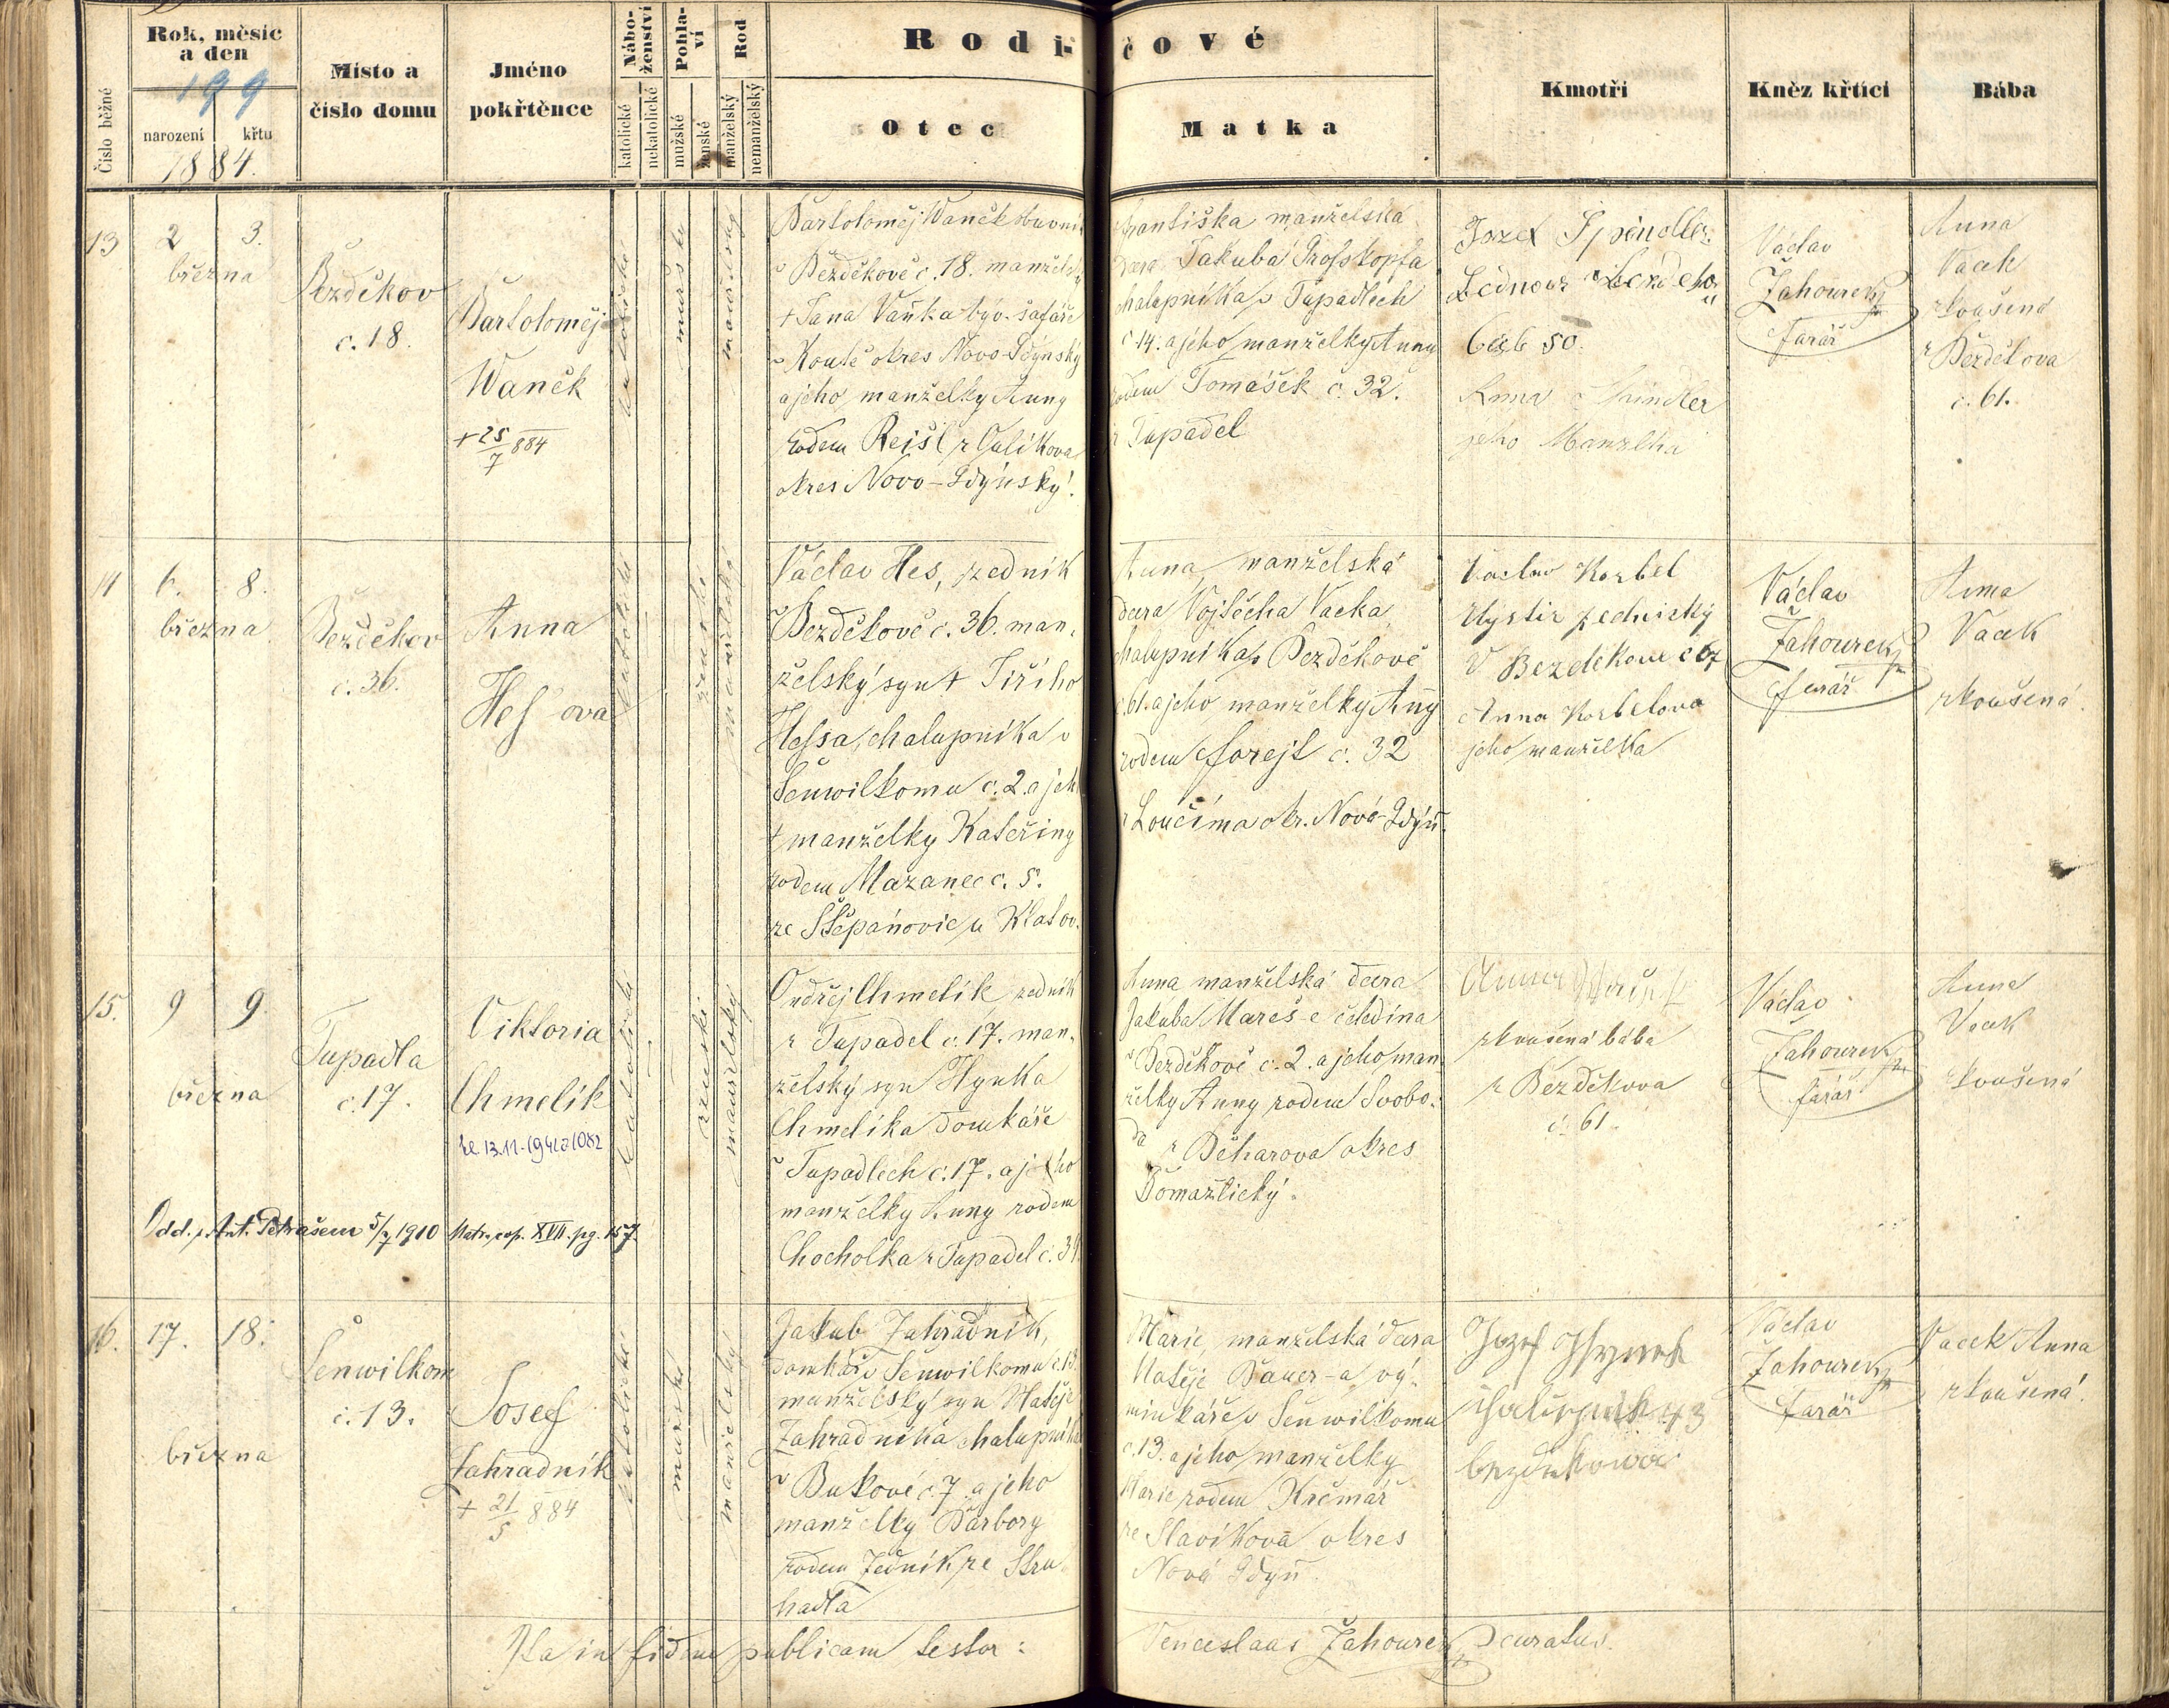 Rodičové
Rok, měsíc
a den
199
narození křtu
1884.
Číslo běžné
Místo a
číslo domu
Jméno
pokřtěnce
Nábo-
ženství
katolické
nekatolické
Pohla-
ví
mužské
ženské
Rod
manželský
nemanželský
Otec
Matka
Kmotři
Kněz křtící
Bába
13
2 3.
března
Bezděkov
č. 18.
Bartoloměj
Waněk
+ 25/7 884
katolické
mužské
manželský
Bartoloměj Waněk obuvník
v Bezděkově č. 18. manželský
+ Jana Vaňka býv. šafáře
v Koutě okres Novo-Gdýnský
a jeho manželky Anny
rodem Reišl z
okres Novo-Gdýnský.
Františka manželská
dcera Jakuba Prosskopfa
chalupníka v Tupadlech
č 14. a jeho manželky Anny
rodem Tomášek č. 32.
z Tupadel
Jozef
50.
Anna
jeho Manzlha
Václav
Zahourek
farář
Anna
Vacek
zkoušená
z Bezděkova
č. 61.
14
6. 8.
března
Bezděkov
č. 36.
Anna
Hessova
katolické
ženské
manželské
Václav Hes, zedník
v Bezděkově č. 36. man-
želský syn + Jiřího
Hessa, chalupníka v
Šenwilkomu č. 2. a jeho
+ manželky Kateřiny
rodem Mazanec č. 5.
ze Štěpánovic u Klatov.
Anna, manželská
dcera Vojtěcha Vacka,
chalupníka v Bezděkově
č. 61. a jeho manželky Anny
rodem Forejt č. 32
z Loučíma okr. Nová-Gdýň.
Vaclav Korbel
Mystir zednicky
V Bezdekove č 67
Anna Korbelova
jeho manželka
Václav
Zahourek
farář
Anna
Vacek
zkoušená.
15.
9 9.
března
Tupadla
č. 17.
Viktoria
Chmelík
13.11.1941
Odd. s Ant. Petrášem 5/7 1910 Matr. cop. XVII. pg. 157.
katolické
ženské
manželský
Ondřej Chmelík, zedník
z Tupadel č. 17. man-
želský syn Hynka
Chmelíka domkáře
v Tupadlech č. 17. a jeho
manželky Anny rodem
Chocholka z Tupadel č. 31.
Anna manželská dcera
Jakuba Mareš-e čeledína
v Bezděkově č. 2. a jeho man-
želky Anny rodem Svobo-
da z Běharova okres
Domažlický.
Anna
zkoušená bába
z Bezděkova
č. 61.
Václav
Zahourek
farář
Anna
Vacek
zkoušená
16.
17. 18.
března
Šenwilkom
č. 13.
Josef
Zahradník
+ 21/5 884
katolické
mužské
manželský
Jakub Zahradník,
domkář v Šenwilkomu č. 13.
manželský syn Matěje
Zahradníka chalupníka
v Bukové č. 7. a jeho
manželky Barbory
rodem Zedník ze Stru-
hadla
Marie, manželská dcera
Matěje Bauer-a vý-
minkáře v Šenwilkomu
č. 13. a jeho manželky
Marie rodem Krčmář
ze Slavíkova okres
Nová Gdýň.
Jozef
Václav
Zahourek
farář
Vacek Anna
zkoušená.
Ita in fidem publicam testor:
Venceslaus Zahourek, curatus.